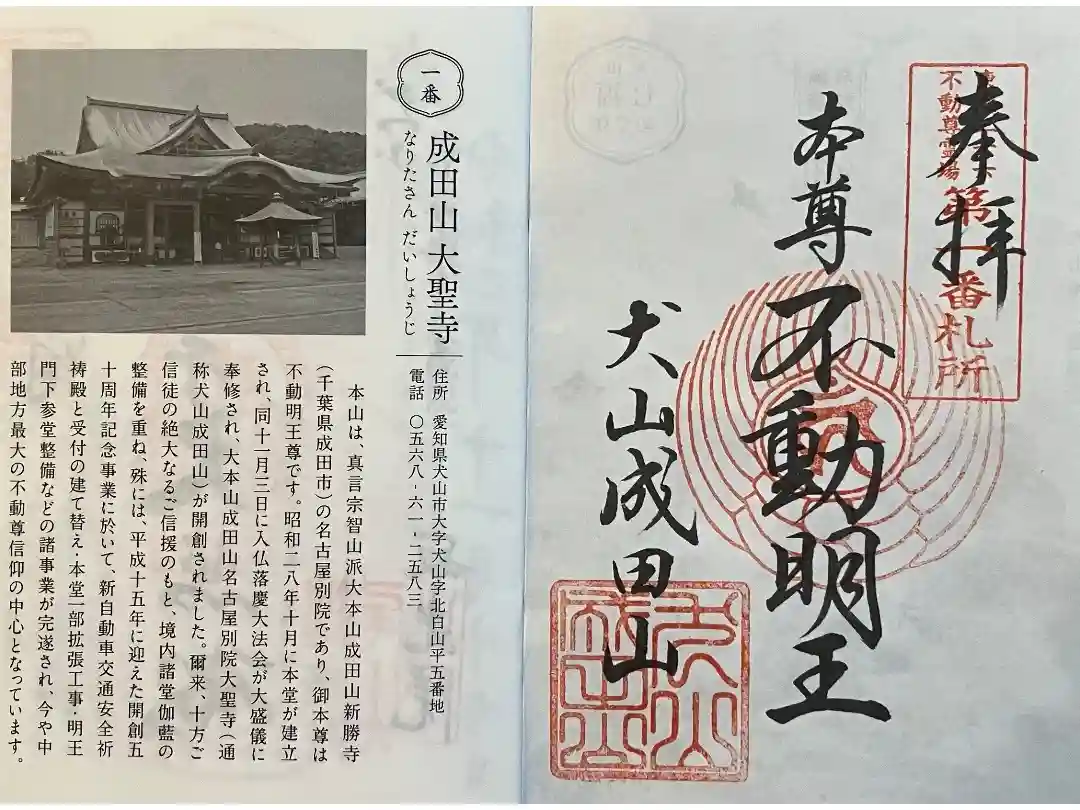 奉拝
不動尊霊場
第一番札所
本尊 不動明王
犬山成田山
一番
成田山 大聖寺
なりたさん だいしょうじ
住所 愛知県犬山市大字犬山字北白山平五番地
電話 〇五六八-六一-二五八三
本山は、真言宗智山派大本山成田山新勝寺
(千葉県成田市)の名古屋別院であり、御本尊は
不動明王尊です。昭和二八年十月に本堂が建立
され、同十一月三日に入仏落慶大法会が大盛儀に
奉修され、大本山成田山名古屋別院大聖寺(通
称犬山成田山)が開創されました。爾来、十方ご
信徒の絶大なるご信援のもと、境内諸堂伽藍の
整備を重ね、殊には、平成十五年に迎えた開創五
十周年記念事業に於いて、新自動車交通安全祈
祷殿と受付の建て替え・本堂一部拡張工事・明王
門下参堂整備などの諸事業が完遂され、今や中
部地方最大の不動尊信仰の中心となっています。